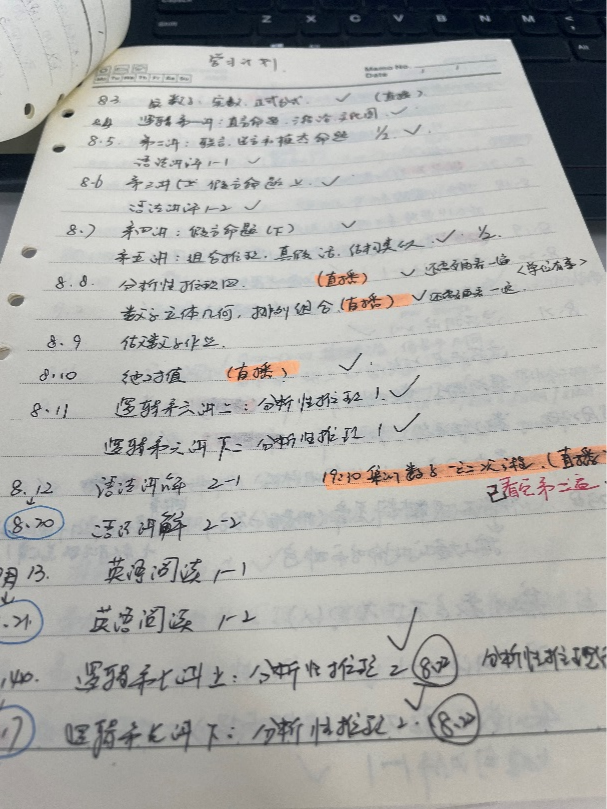 学习计划
Memo No.
Date / /
Mo Tu We Th Fr Sa Su
8.3 数学: 实数, 正式公式 ✓ (直播)
8.4 逻辑第一讲: 直言命题, ✓
8.5. 第二讲: 联言、选言和模态命题 1/2 ✓
语法讲解1-1 ✓
8.6 第三讲(上) 假言命题上 ✓
语法讲解1-2 ✓
8.7 第四讲: 假言命题(下) ✓
第五讲: 组合推理, 真假话, 结构类似 ✓ 1/2
8.8. 分析性推理四. (直播) ✓ 还需要再看一遍
数学立体几何, 排列组合(直播) ✓ 还需要再看一遍
8.9 做数学作业.
8.10 绝对值 (直播) ✓
8.11 逻辑第六讲上: 分析性推理 1 ✓
逻辑第六讲下: 分析性推理 1 ✓
8.12 语法讲解 2-1 19:30 集训数学 一元二次方程. (直播
已看完第二遍
8.20 语法讲解 2-2
月13. 英语阅读 1-1
.21 英语阅读 1-2
逻辑第七讲上: 分析性推理 2 ✓ 8.22 分析性推理
.17 逻辑第七讲下: 分析性推理 2. ✓ 8.22